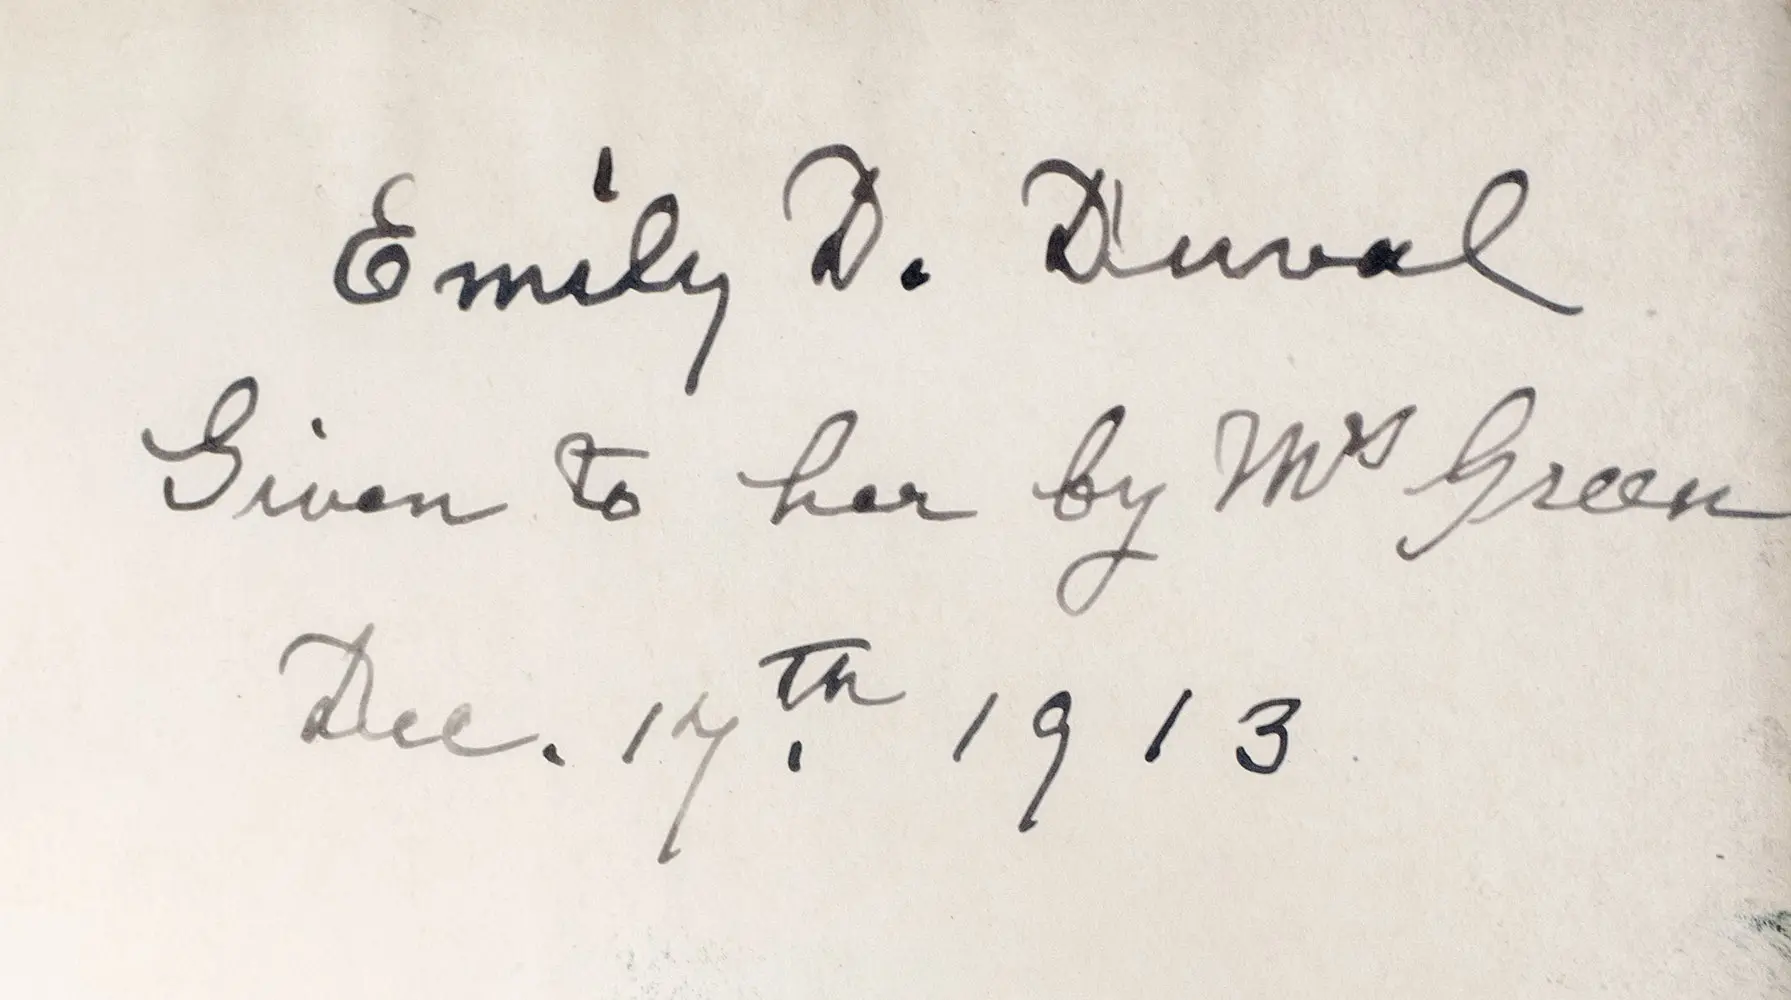 Emily D. Duval
Given to her by Mrs Green
Dec. 17th. 1913